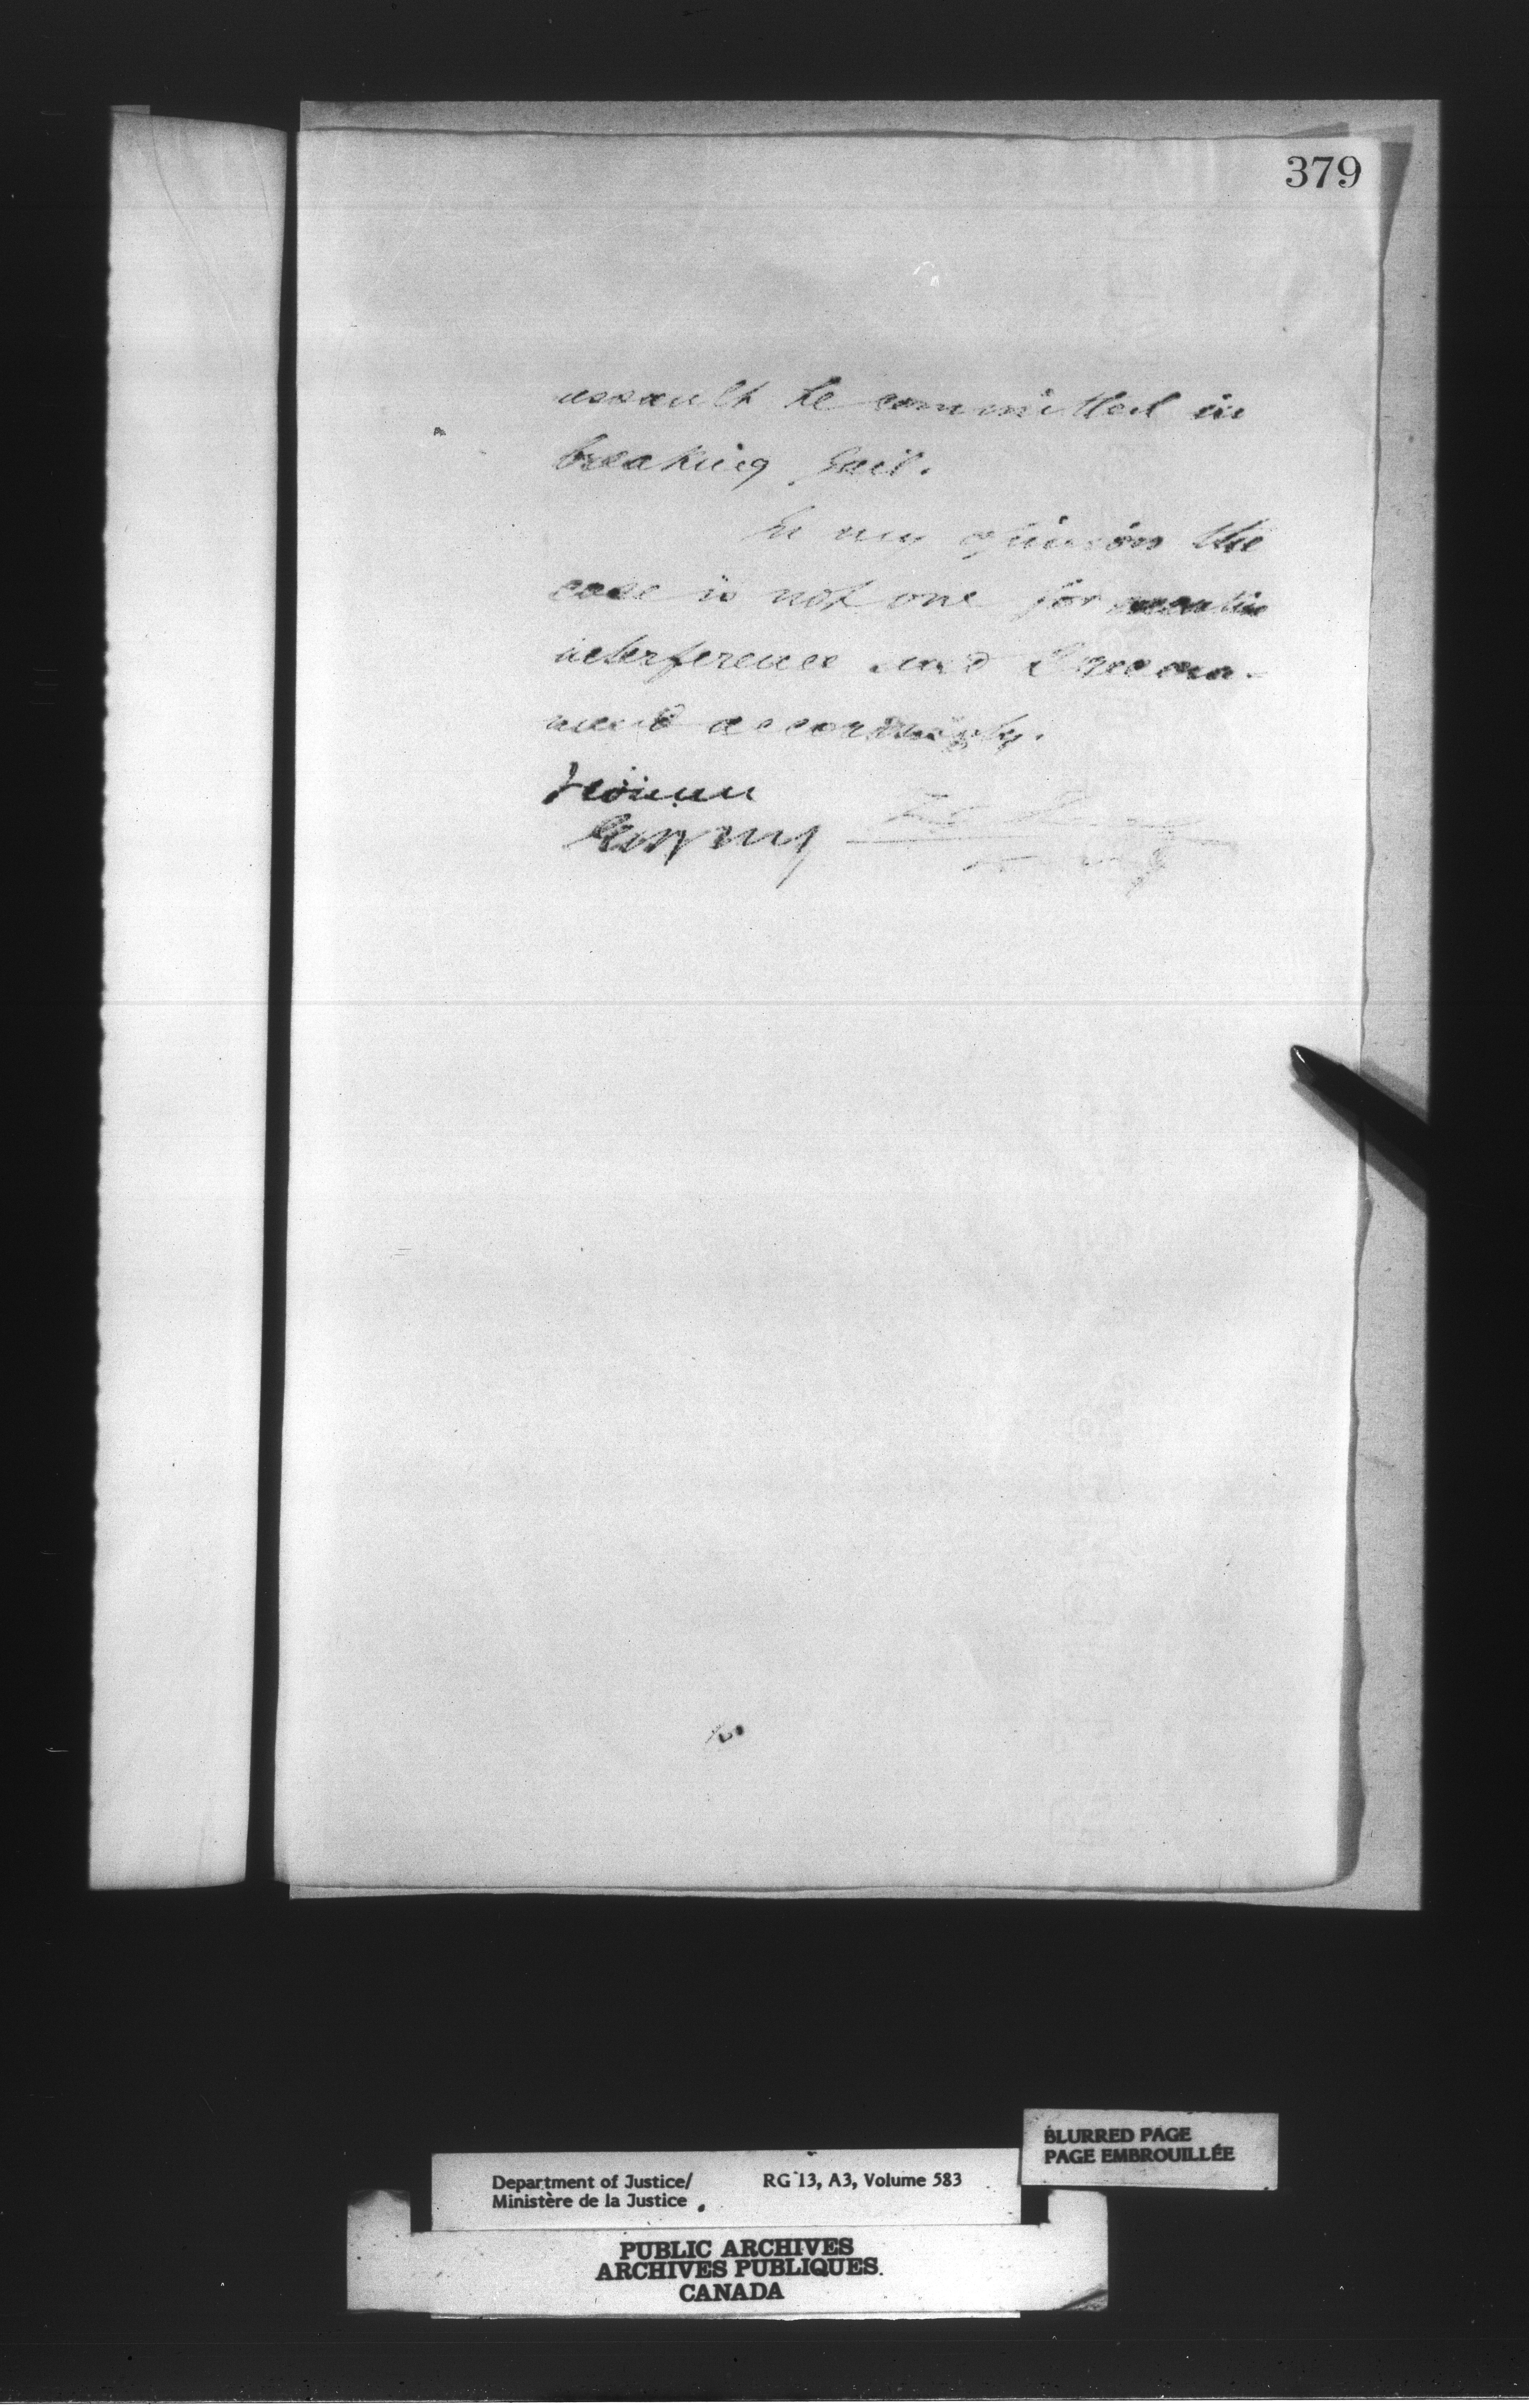 379
assault he committed in
breaking Gaol.
In my opinion the
case is not one for executive
interference and I recom-
mend accordingly.
BLURRED PAGE
PAGE EMBROUILLÉE
Department of Justice/
Ministère de la Justice
RG 13, A3, Volume 583
PUBLIC ARCHIVES
ARCHIVES PUBLIQUES
CANADA